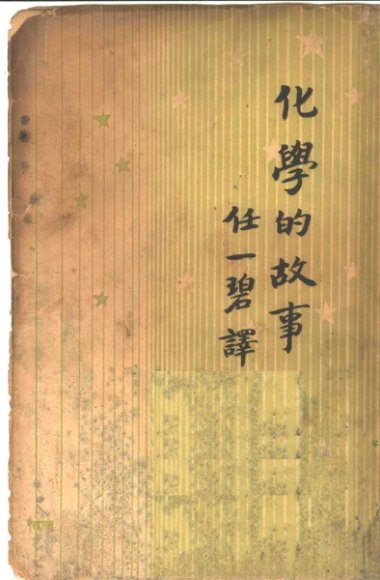 化學的故事
任一碧譯